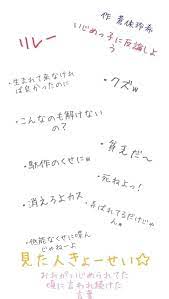 作 蒼依玲希
リレー
いじめっ子に反論しよ
う
・生まれて来なければ
良かったのに
・クズw
・こんなのも解けない
の?
・貧乏だ〜
・駄作のくせにw
・死ねよっ!
・消えろよカス
・よばれてるだけじゃ
んw
・低能なくせに喋ん
じゃねーよ
見た人きょーせい☆
おおがいじめられてた
頃に言われ続けた
言葉